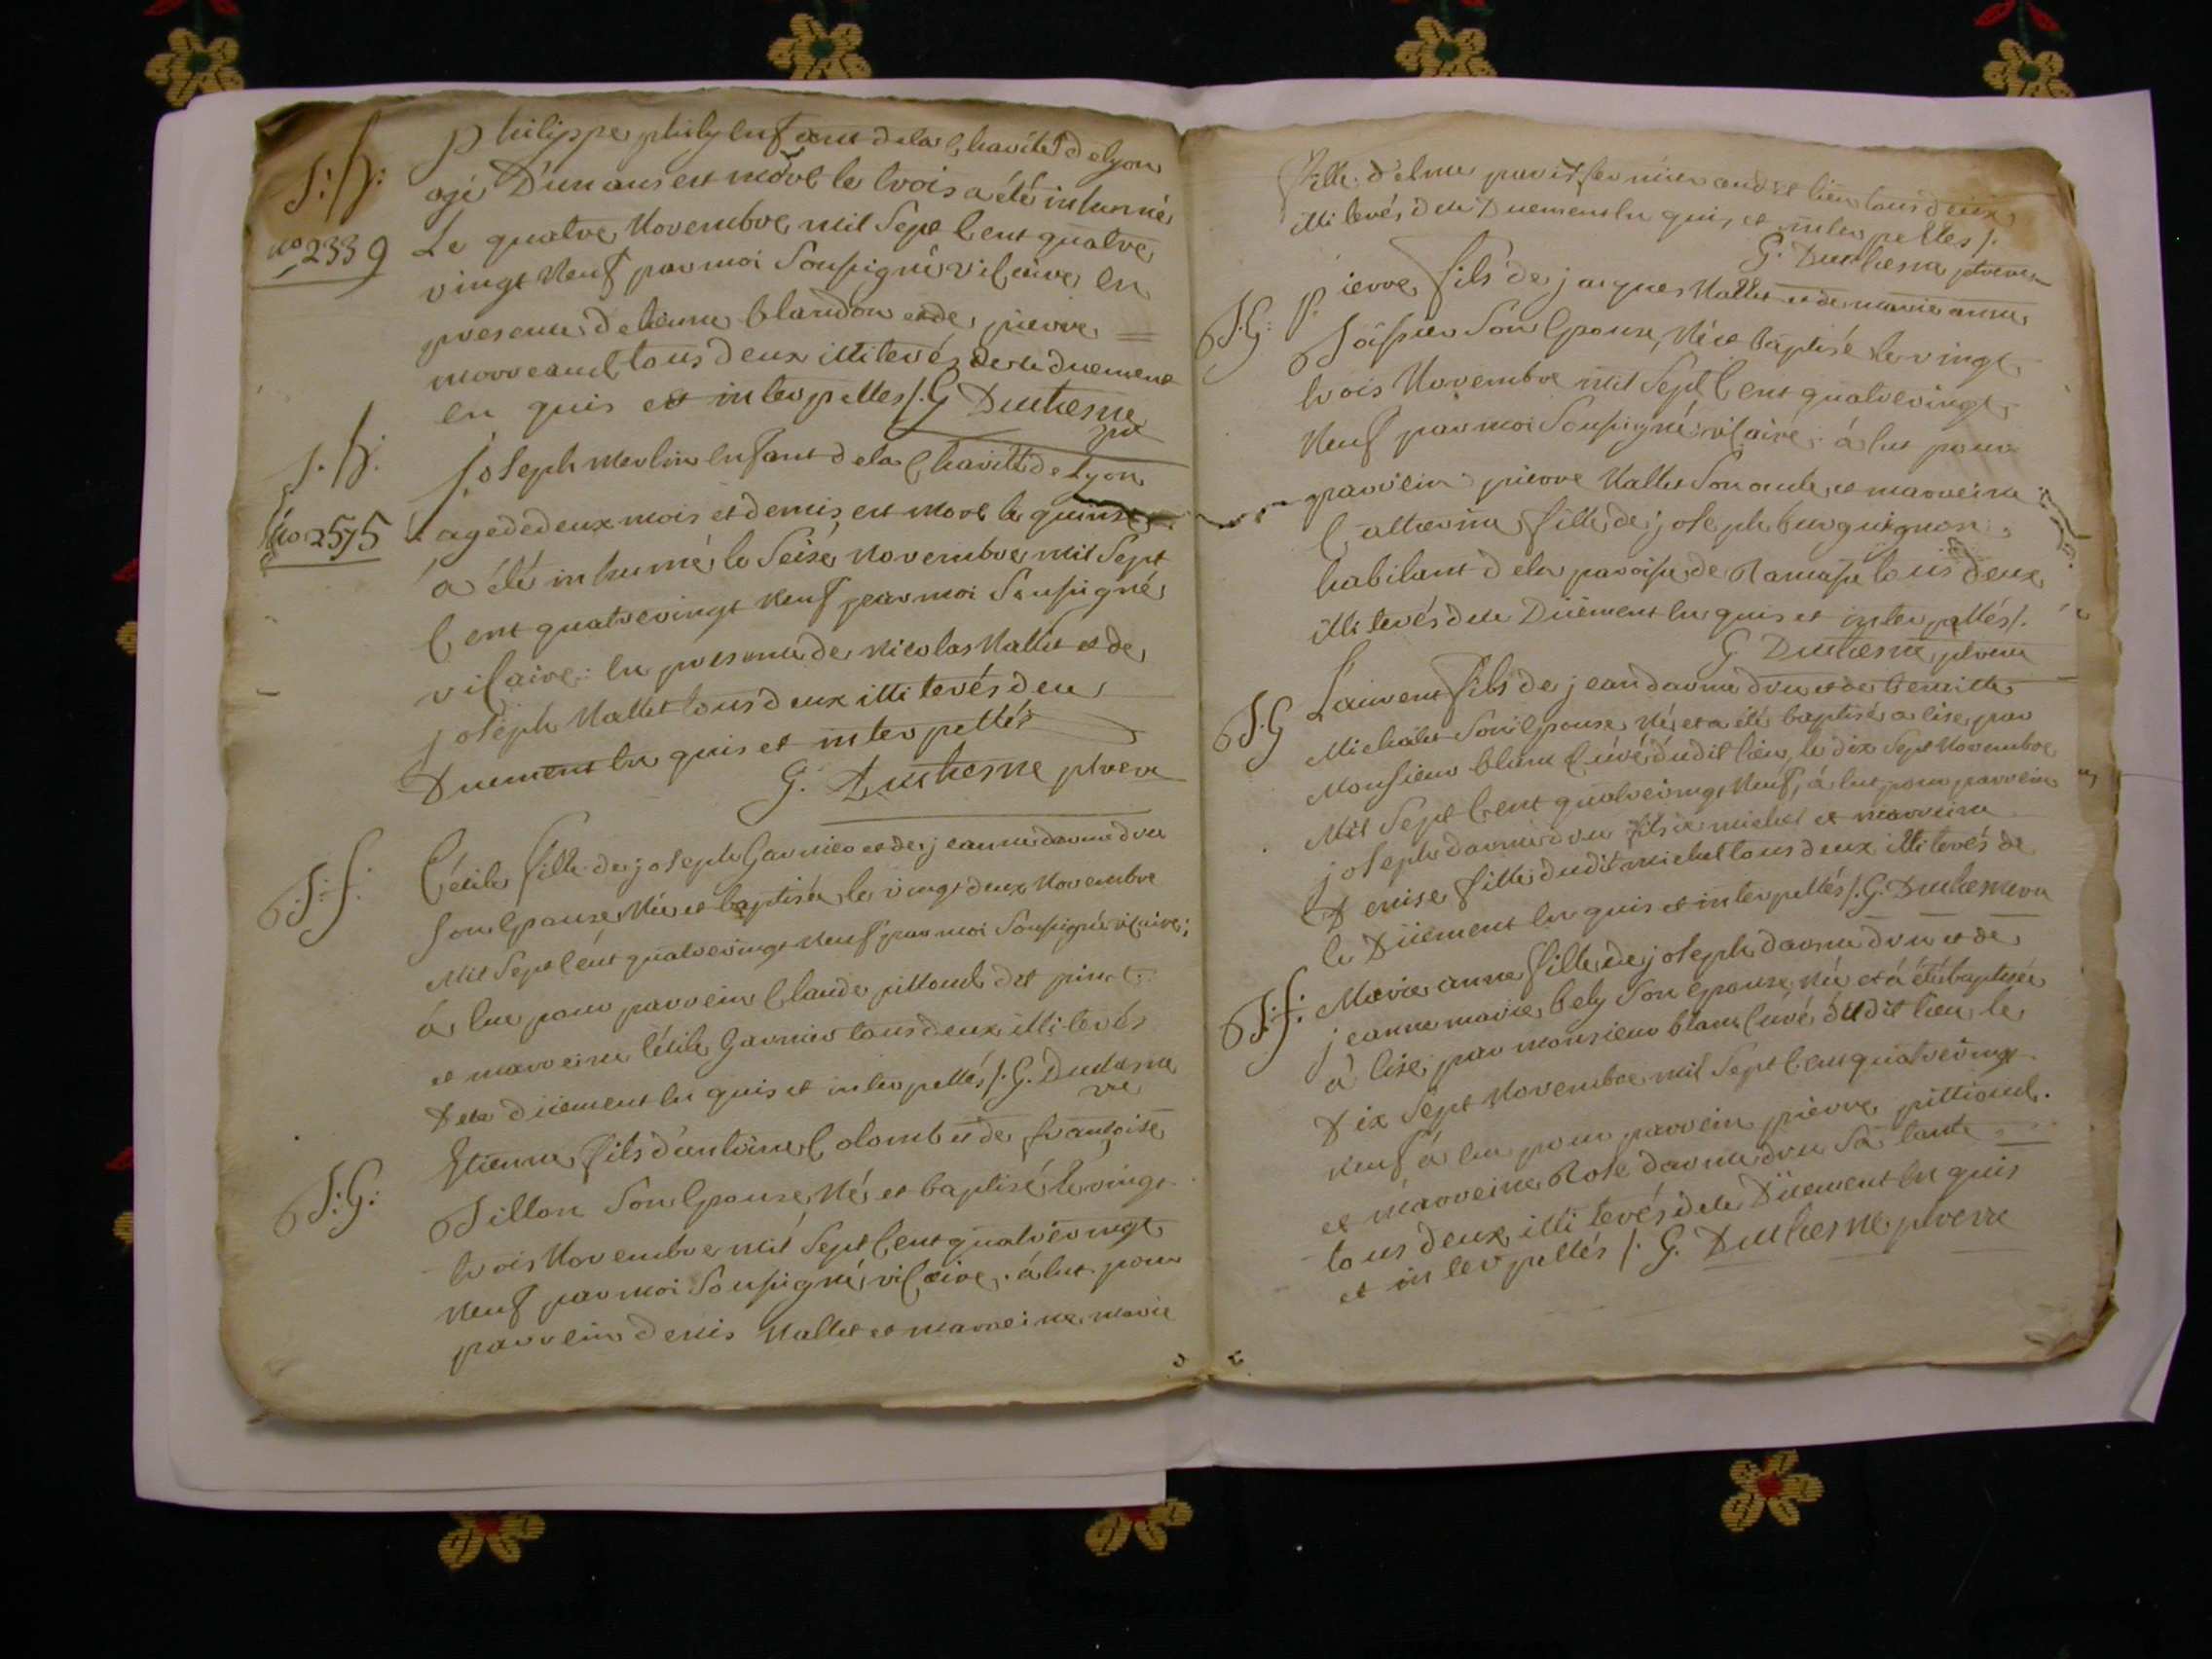 S: h:
no 2339
Philippe phily enfant dela Charité de lyon
agé D'un ans est mort le trois a été inhumé
Le quatre Novembre mil Sept Cent quatre
vingt Neuf par moi Soussigné vicaire en
presence detienne blandon et de pierre
morreaud tous deux illiterés de ce duement
en quis et interpellés /. G Duchesne
pre
S. h.
no 2575
joseph merlin enfant dela Charité de Lyon
agé de deux mois et demis est mort le quinse
a été inhumé le Seisé Novembre mil Sept
Cent quatrevingt Neuf par moi Soussigné
vicaire: en presence de nicolas Nallet et de
joseph Nallet tous deux illiterés de ce
Duement en quis et interpellés
G. Duchesne ptrere
B: f:
Cécile fille de joseph Garnier et de jeanne
Son Epouse, Née et baptisée le vingt deux Novembre
Mil Sept Cent quatrevingt Neuf par moi Soussigné vicaire:
á eu pour parrein Claude pittoud dit pinet
et marreine Cécile Garnier tous deux illiterés
De ce düement en quis et interpellés /. G. Duchesne
vre
B: G:
Etienne fils d'antoine Colomb et de françoise
Billon Son Epouse Né et baptisé le vingt
trois Novembre mil Sept Cent quatrevingt
Neuf par moi Soussigné vicaire. á eut pour
parrein denis Nallet et marreine marie
fille tous deux
illiterés de ce Duement en quis et interpellés /.
G. Duchesne ptrere
B. G:
pierre fils de jacques Nallet et de marie anne
Son Epouse, Né et baptisé le vingt
trois Novembre mil Sept Cent quatrevingt
Neuf par moi Soussigné vicaire: á eut pour
parrein pierre Nallet Son oncle et marreine
Catherine fille de joseph burguignon
habitant dela paroisse de Ramasse tous deux
illiterés de ce Düement en quis et interpellés /.
G Duchesne ptrere
B. G
Laurent fils de jean et de
Michalet Son Epouse Né et a été baptisé a lise par
Monsieur blanc Curé dudit lieu, le dix Sept Novembre
Mil Sept Cent quatrevingt Neuf, á eut pour parrein
joseph fils de michel et marreine
Denise fille dudit michel tous deux illiterés de
ce Düement en quis et interpellés /. G. Duchesne
B: f:
Marie anne fille de joseph et de
jeanne marie bely Son Epouse, Née et á été baptisée
a lise par monsieur blanc Curé dudit lieu le
Dix Sept Novembre mil Sept Cent quatrevingt
Neuf á eu pour parrein pierre pittioud.
et marreine Rose Sa tante
tous deux illiterés de ce Düement en quis
et interpellés /. G. Duchesne ptrerre